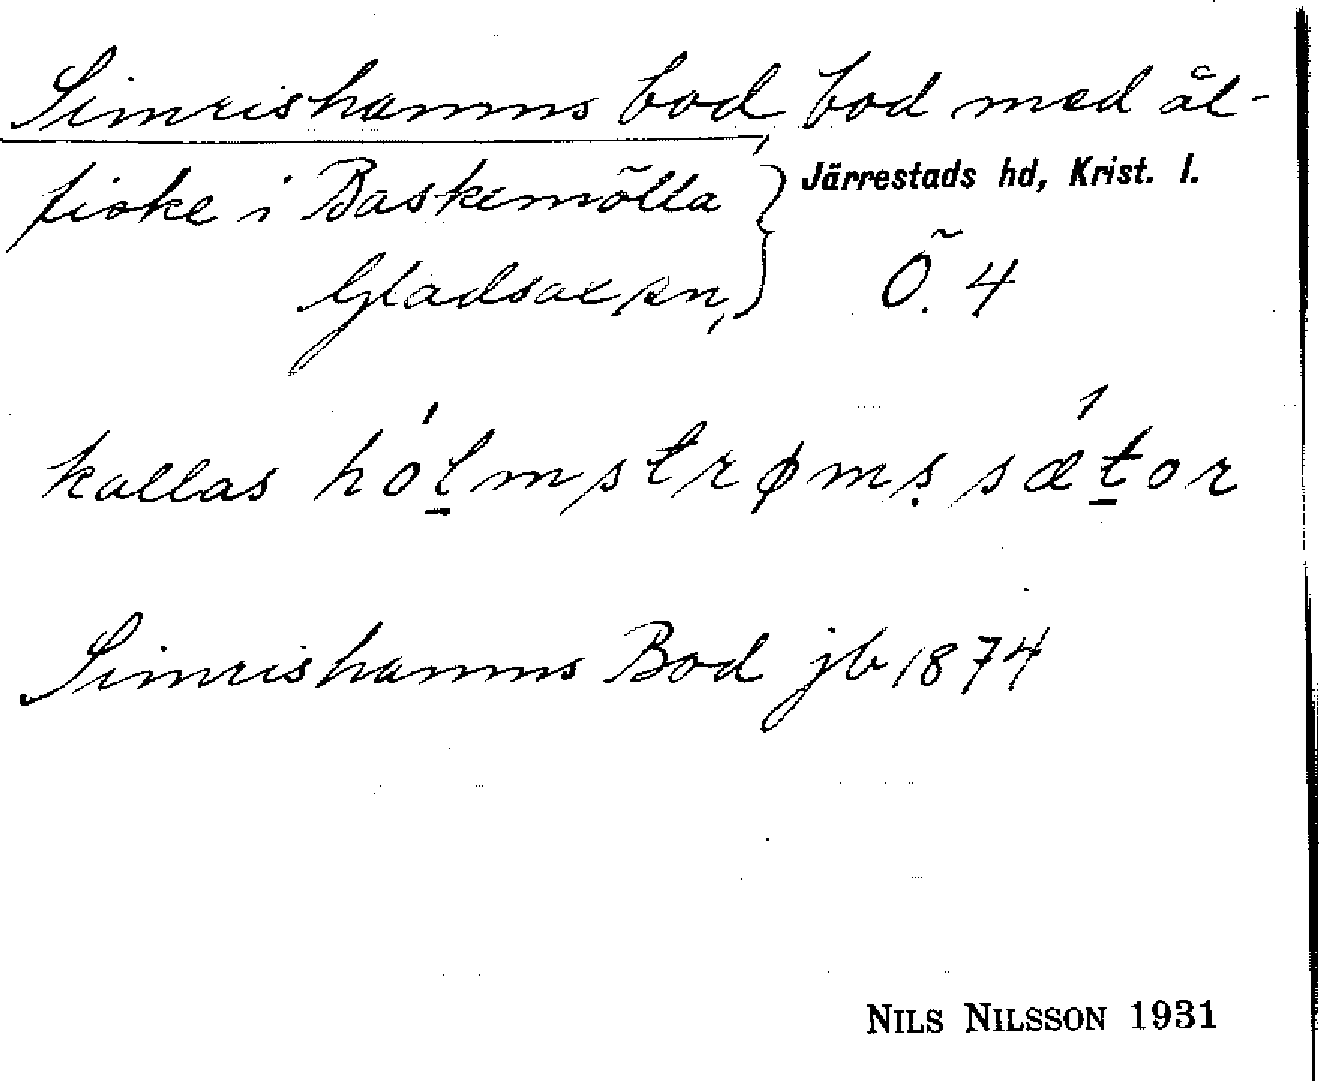 Simrishamns bod, bod med ål-
fiske i Baskemölla } Järrestads hd, Krist. l.
Gladsax sn, } Ö. 4
kallas hólmstrøms sætor
Simrishamns Bod jb 1874
NILS NILSSON 1931